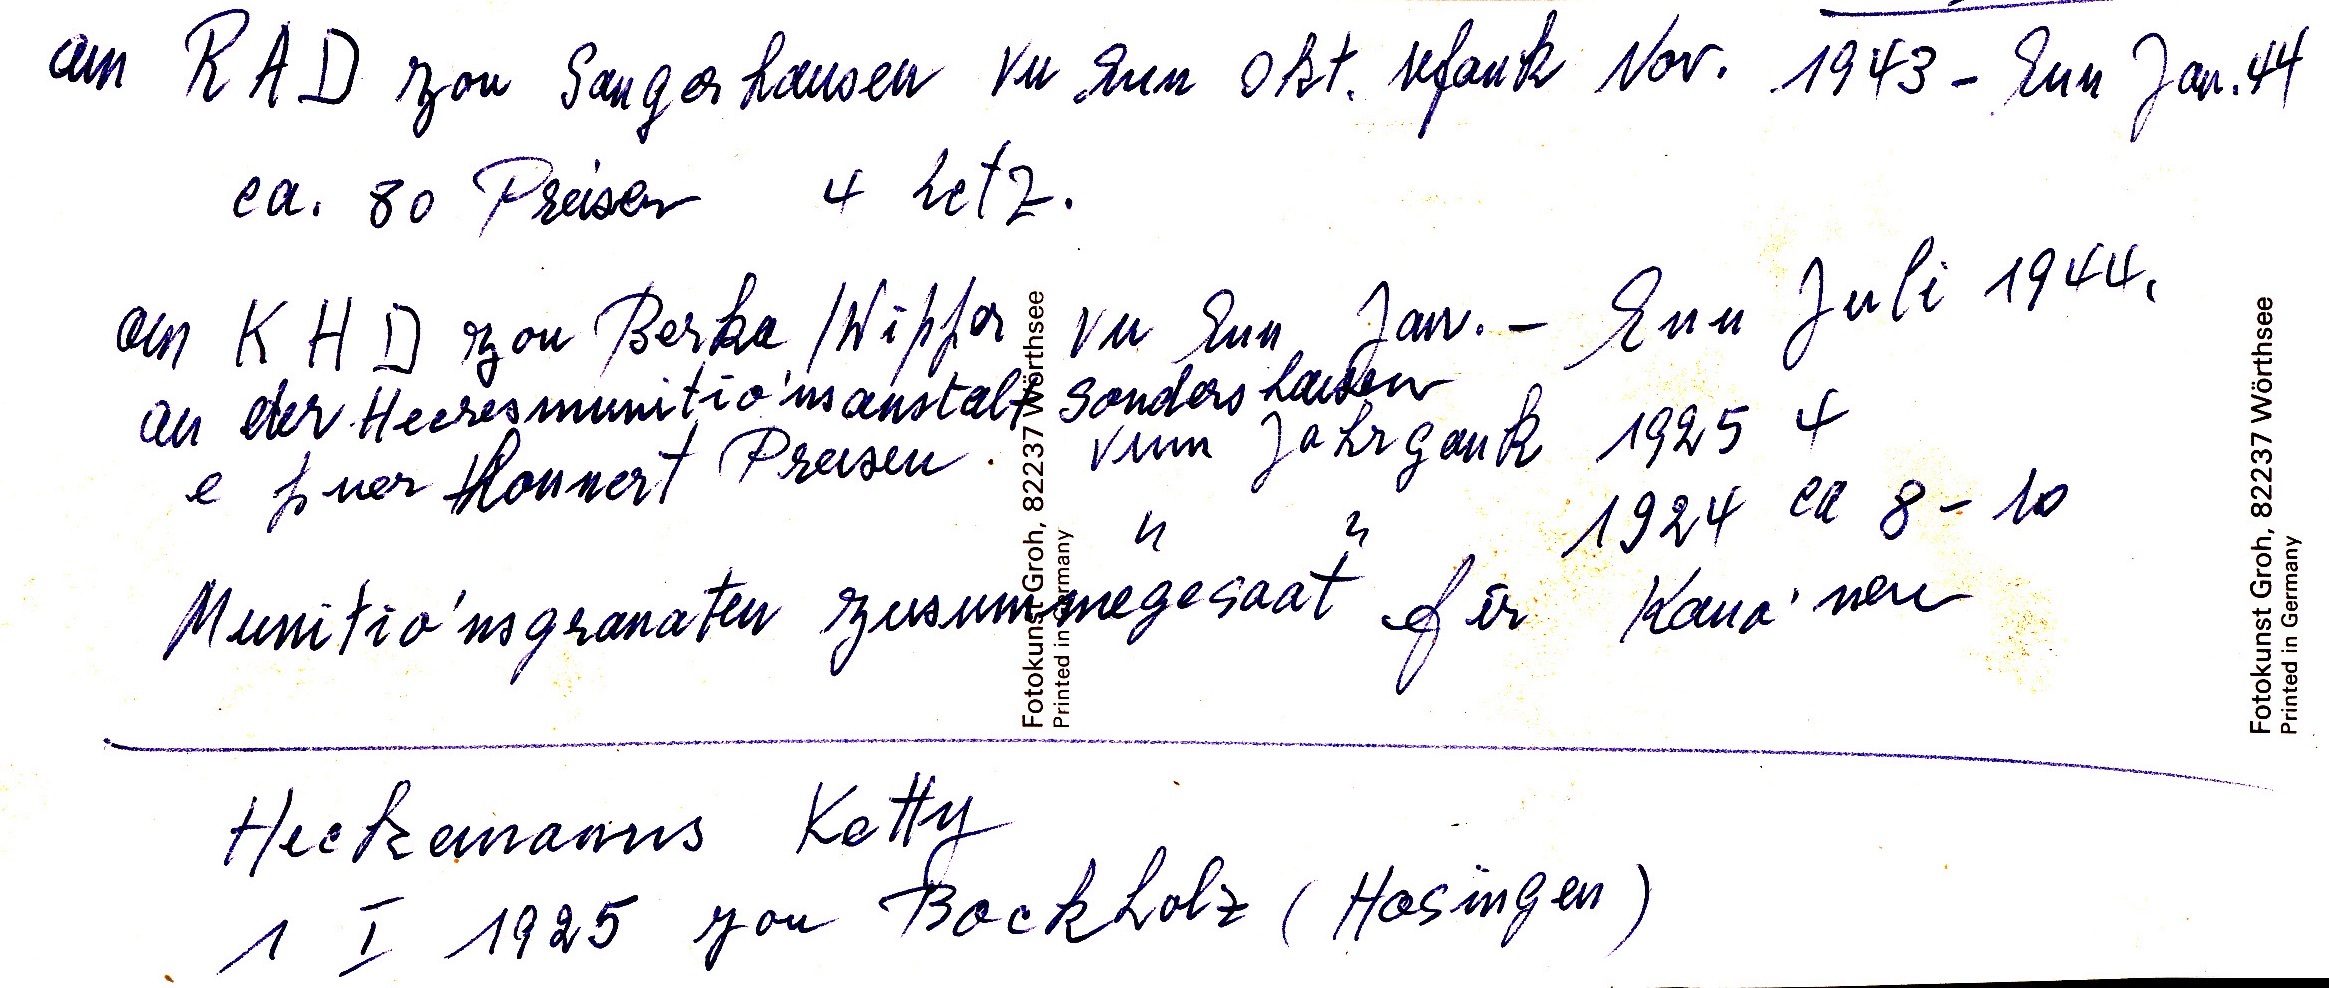 am RAD zou Sangerhausen vu Enn Okt. Ufank Nov. 1943 - Enn Jan. 44
ca. 80 Preisen 4 Letz.
am KHD zou Berka /Wipper vu Enn Jan. - Enn Juli 1944.
an der Heeresmunitio'nsanstalt Sondershausen
e puer Honnert Preisen. vum Jahrgank 1925 4
" " 1924 ca 8 - 10
Munitio'nsgranaten zusummegesaat fir Kano'nen
Heckemanns Ketty
1 I 1925 zou Bockholz (Hosingen)
Fotokunst Groh, 82237 Wörthsee
Printed in Germany
Fotokunst Groh, 82237 Wörthsee
Printed in Germany